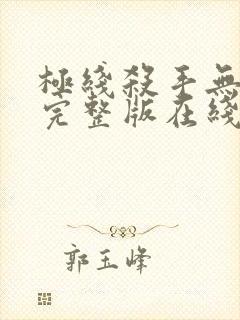 極綫殺手無
完整版在綫
郭玉峰